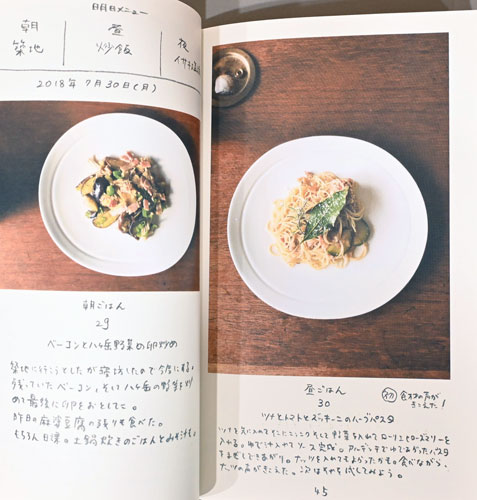 明日メニュー
朝
築地
昼
炒飯
夜
2018年7月30日(月)
朝ごはん
29
ベーコンと八ヶ岳野菜の卵炒め
築地に行こうとしたが寝坊したので今度にする。
残っていたベーコン、そして八ヶ岳の野菜を炒
めて最後に卵をおとして。
昨日の麻婆豆腐の残りも食べた。
もちろん日課。土鍋炊きのごはんとみそ汁も。
昼ごはん
30
初 食材の声が
きこえた!
ツナとトマトとズッキーニのハーブパスタ
ツナを先に入れて
そして野菜を入れてローリエとローズマリーを
入れる。ゆで汁入れてソース完成。アルデンテでゆであがったパスタ
できあがり。ナッツを入れてもよかったかも。食べながら、
ナッツの声がきこえた。次はそれも試してみよう。
45